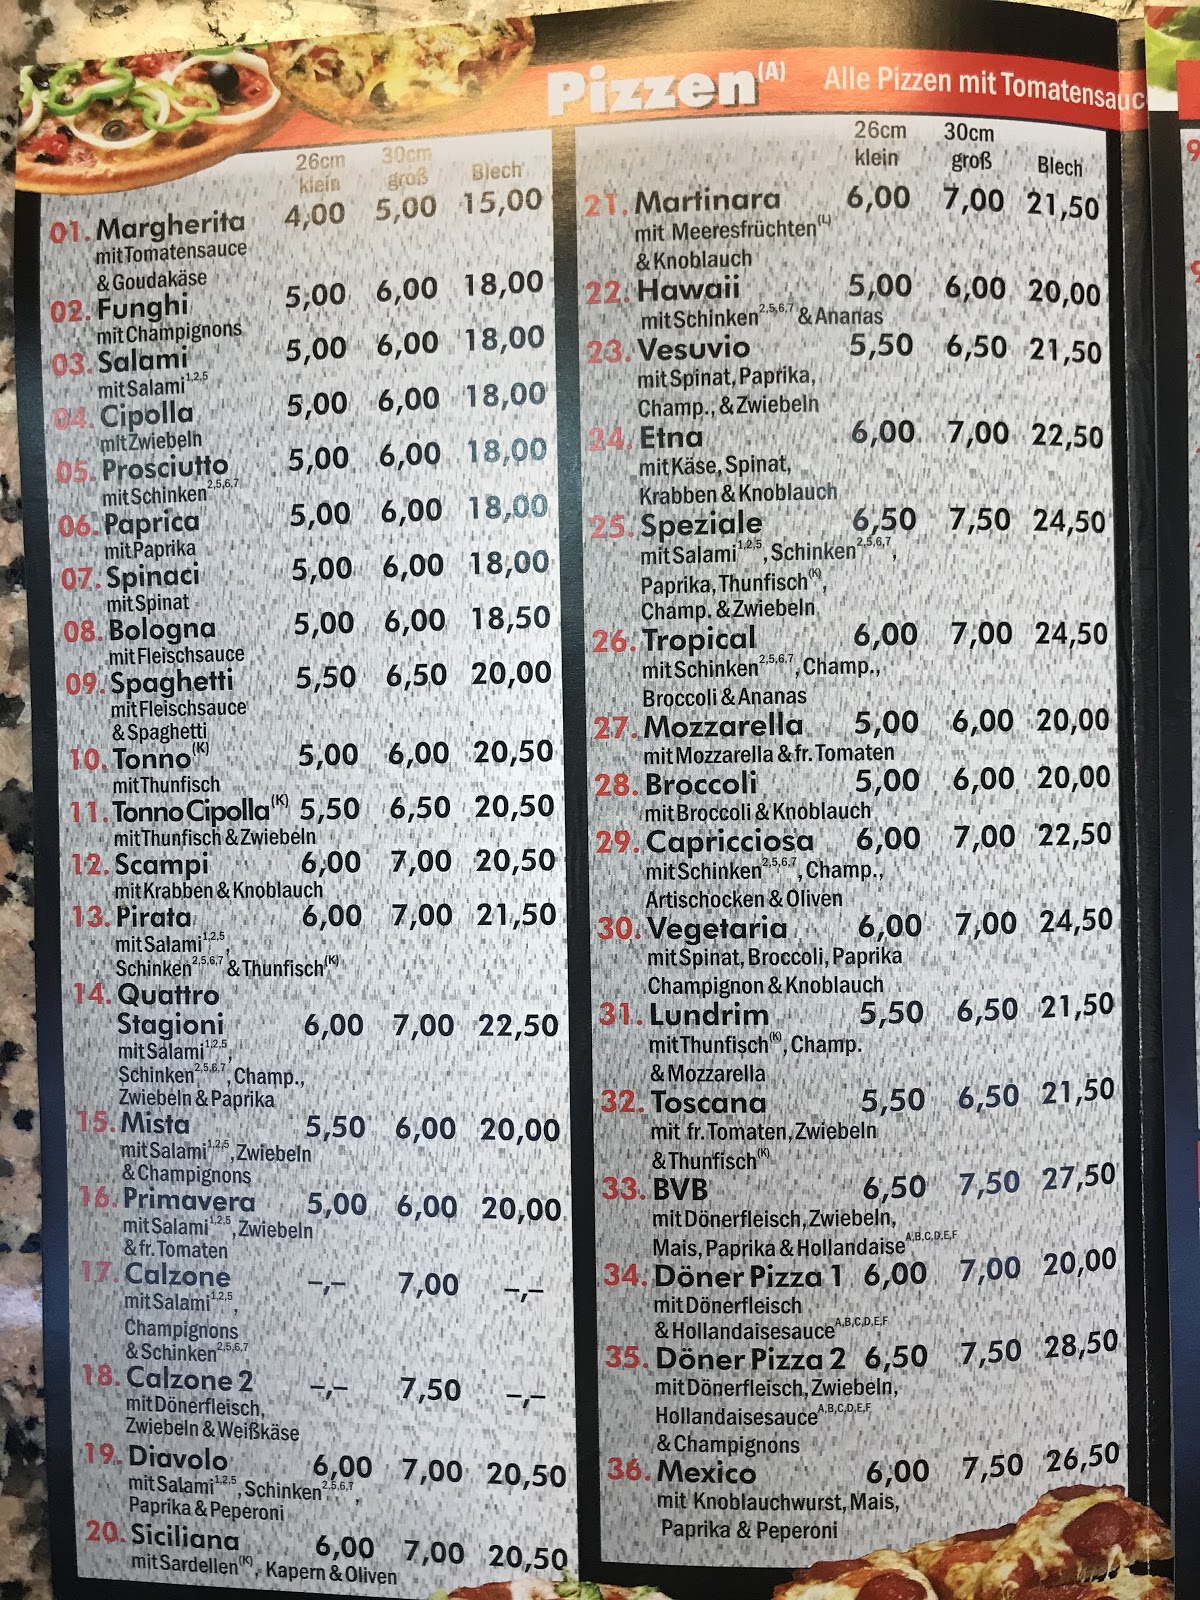 Pizzen(A) Alle Pizzen mit Tomatensauc
26cm 30cm
klein groß Blech
01. Margherita 4,00 5,00 15,00
mit Tomatensauce
& Goudakäse
02. Funghi 5,00 6,00 18,00
mit Champignons
03. Salami 5,00 6,00 18,00
mit Salami1,2,5
04. Cipolla 5,00 6,00 18,00
mit Zwiebeln
05. Prosciutto 5,00 6,00 18,00
mit Schinken2,5,6,7
06. Paprica 5,00 6,00 18,00
mit Paprika
07. Spinaci 5,00 6,00 18,00
mit Spinat
08. Bologna 5,00 6,00 18,50
mit Fleischsauce
09. Spaghetti 5,50 6,50 20,00
mit Fleischsauce
& Spaghetti
10. Tonno(K) 5,00 6,00 20,50
mit Thunfisch
11. Tonno Cipolla(K) 5,50 6,50 20,50
mit Thunfisch & Zwiebeln
12. Scampi 6,00 7,00 20,50
mit Krabben & Knoblauch
13. Pirata 6,00 7,00 21,50
mit Salami1,2,5,
Schinken2,5,6,7 & Thunfisch(K)
14. Quattro
Stagioni 6,00 7,00 22,50
mit Salami1,2,5,
Schinken2,5,6,7, Champ.,
Zwiebeln & Paprika
15. Mista 5,50 6,00 20,00
mit Salami1,2,5, Zwiebeln
& Champignons
16. Primavera 5,00 6,00 20,00
mit Salami1,2,5, Zwiebeln
& fr. Tomaten
17. Calzone –,– 7,00 –,–
mit Salami1,2,5,
Champignons
& Schinken2,5,6,7
18. Calzone 2 –,– 7,50 –,–
mit Dönerfleisch,
Zwiebeln & Weißkäse
19. Diavolo 6,00 7,00 20,50
mit Salami1,2,5, Schinken2,5,6,7,
Paprika & Peperoni
20. Siciliana 6,00 7,00 20,50
mit Sardellen(K), Kapern & Oliven
26cm 30cm
klein groß Blech
21. Martinara 6,00 7,00 21,50
mit Meeresfrüchten(L)
& Knoblauch
22. Hawaii 5,00 6,00 20,00
mit Schinken2,5,6,7 & Ananas
23. Vesuvio 5,50 6,50 21,50
mit Spinat, Paprika,
Champ., & Zwiebeln
24. Etna 6,00 7,00 22,50
mit Käse, Spinat,
Krabben & Knoblauch
25. Speziale 6,50 7,50 24,50
mit Salami1,2,5, Schinken2,5,6,7,
Paprika, Thunfisch(K),
Champ. & Zwiebeln
26. Tropical 6,00 7,00 24,50
mit Schinken2,5,6,7, Champ.,
Broccoli & Ananas
27. Mozzarella 5,00 6,00 20,00
mit Mozzarella & fr. Tomaten
28. Broccoli 5,00 6,00 20,00
mit Broccoli & Knoblauch
29. Capricciosa 6,00 7,00 22,50
mit Schinken2,5,6,7, Champ.,
Artischocken & Oliven
30. Vegetaria 6,00 7,00 24,50
mit Spinat, Broccoli, Paprika
Champignon & Knoblauch
31. Lundrim 5,50 6,50 21,50
mit Thunfisch(K), Champ.
& Mozzarella
32. Toscana 5,50 6,50 21,50
mit fr. Tomaten, Zwiebeln
& Thunfisch(K)
33. BVB 6,50 7,50 27,50
mit Dönerfleisch, Zwiebeln,
Mais, Paprika & HollandaiseA,B,C,D,E,F
34. Döner Pizza 1 6,00 7,00 20,00
mit Dönerfleisch
& HollandaisesauceA,B,C,D,E,F
35. Döner Pizza 2 6,50 7,50 28,50
mit Dönerfleisch, Zwiebeln,
HollandaisesauceA,B,C,D,E,F
& Champignons
36. Mexico 6,00 7,50 26,50
mit Knoblauchwurst, Mais,
Paprika & Peperoni